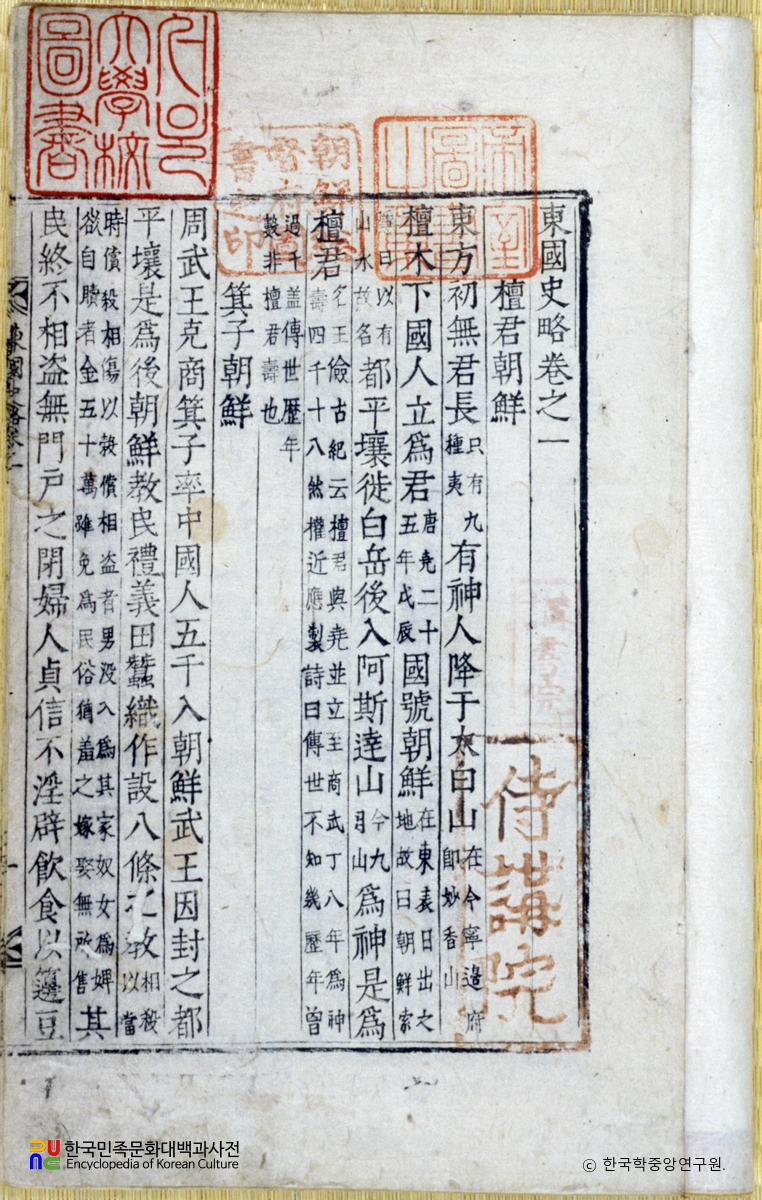 東國史略卷之一
檀君朝鮮
東方初無君長只有九種夷有神人降于太白山在今寧邊府即妙香山
檀木下國人立爲君唐堯二十五年戊辰國號朝鮮在東表日出之地故曰朝鮮索
曰以有山水故名都平壤徙白岳後入阿斯達山今九月山爲神是爲
檀君名王儉古紀云檀君與堯並立至商武丁八年爲神壽四千十八然權近應製詩曰傳世不知幾歷年曾
過千盖傳世歷年數非檀君壽也
箕子朝鮮
周武王克商箕子率中國人五千入朝鮮武王因封之都
平壤是爲後朝鮮教民禮義田蠶織作設八條之敎相殺以當
時償殺相傷以穀償相盜者男沒入爲其家奴女爲婢欲自贖者金五十萬雖免爲民俗猶羞之嫁娶無所售其
民終不相盜無門戶之閉婦人貞信不淫辟飲食以籩豆
侍講院
帝室圖書之章
朝鮮總督府圖書之印
서울大學校圖書
한국민족문화대백과사전
Encyclopedia of Korean Culture
ⓒ 한국학중앙연구원.